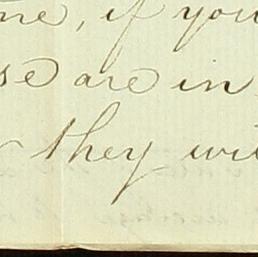 me, if you
se are in
they wi